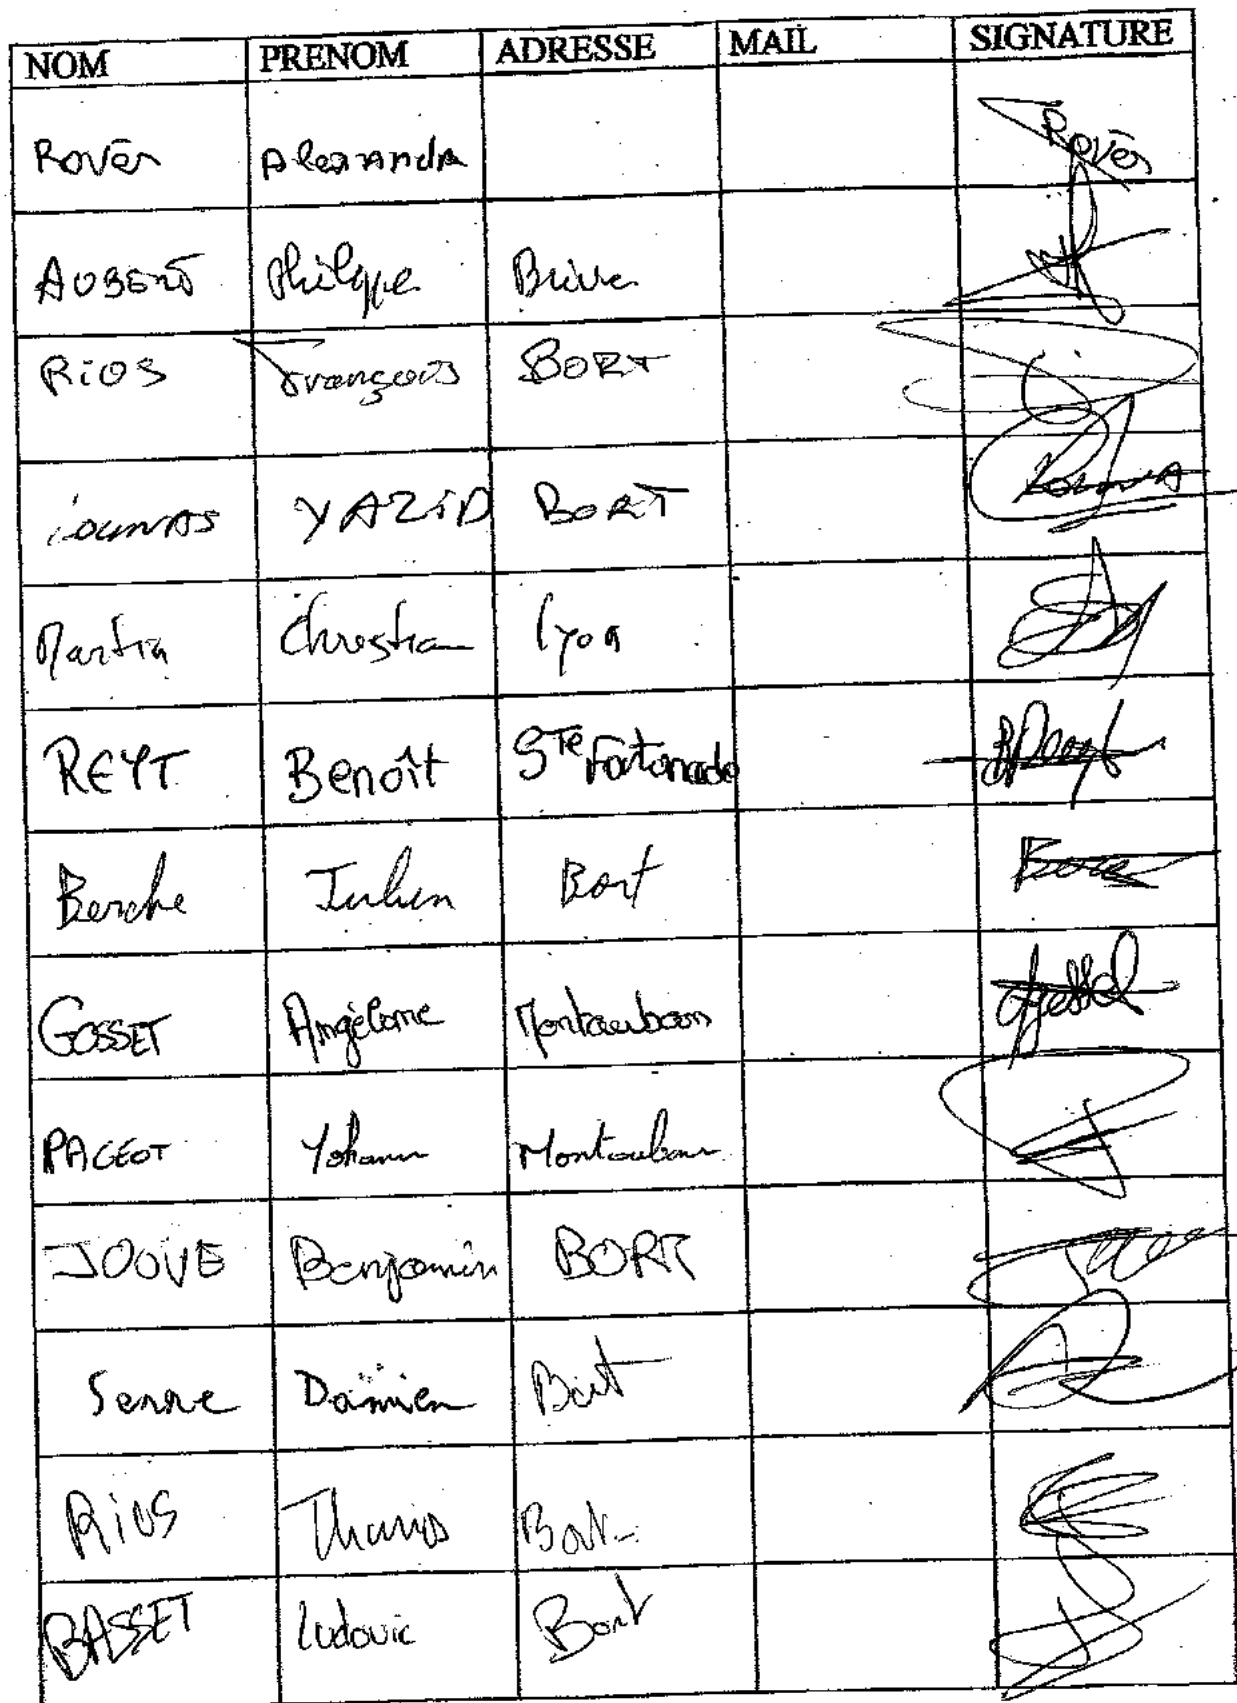 NOM PRENOM ADRESSE MAIL SIGNATURE
Rovès Alexandra Rovès
AUBERT Philippe Brive
RiOS François BORT
iounas YAZiD BORT
Martin Christian lyon
REYT Benoît STe Fortunade
Berche Julien Bort
GOSSET Angéline Montauban
PAGEOT Yohann Montauban
JOUVE Benjamin BORT
Serre Damien Bort
Rios Thomas Bort
BASSET Ludovic Bort